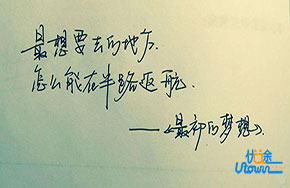 最想要去的地方.
怎么能在半路返航.
——《最初的梦想》.
优途
Utown